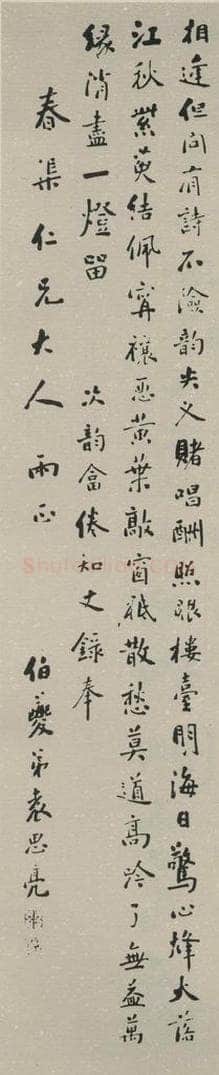 相逢但问有詩不險韵尖义賭唱酬照眼樓臺開海日驚心烽火落
江秋紫萸結佩寧禳惡黄葉敲窗祗散愁莫道高吟了無益萬
缘消盡一燈留 次韵盒倦知丈録奉
春渠仁兄大人雨正
伯夔弟袁思亮